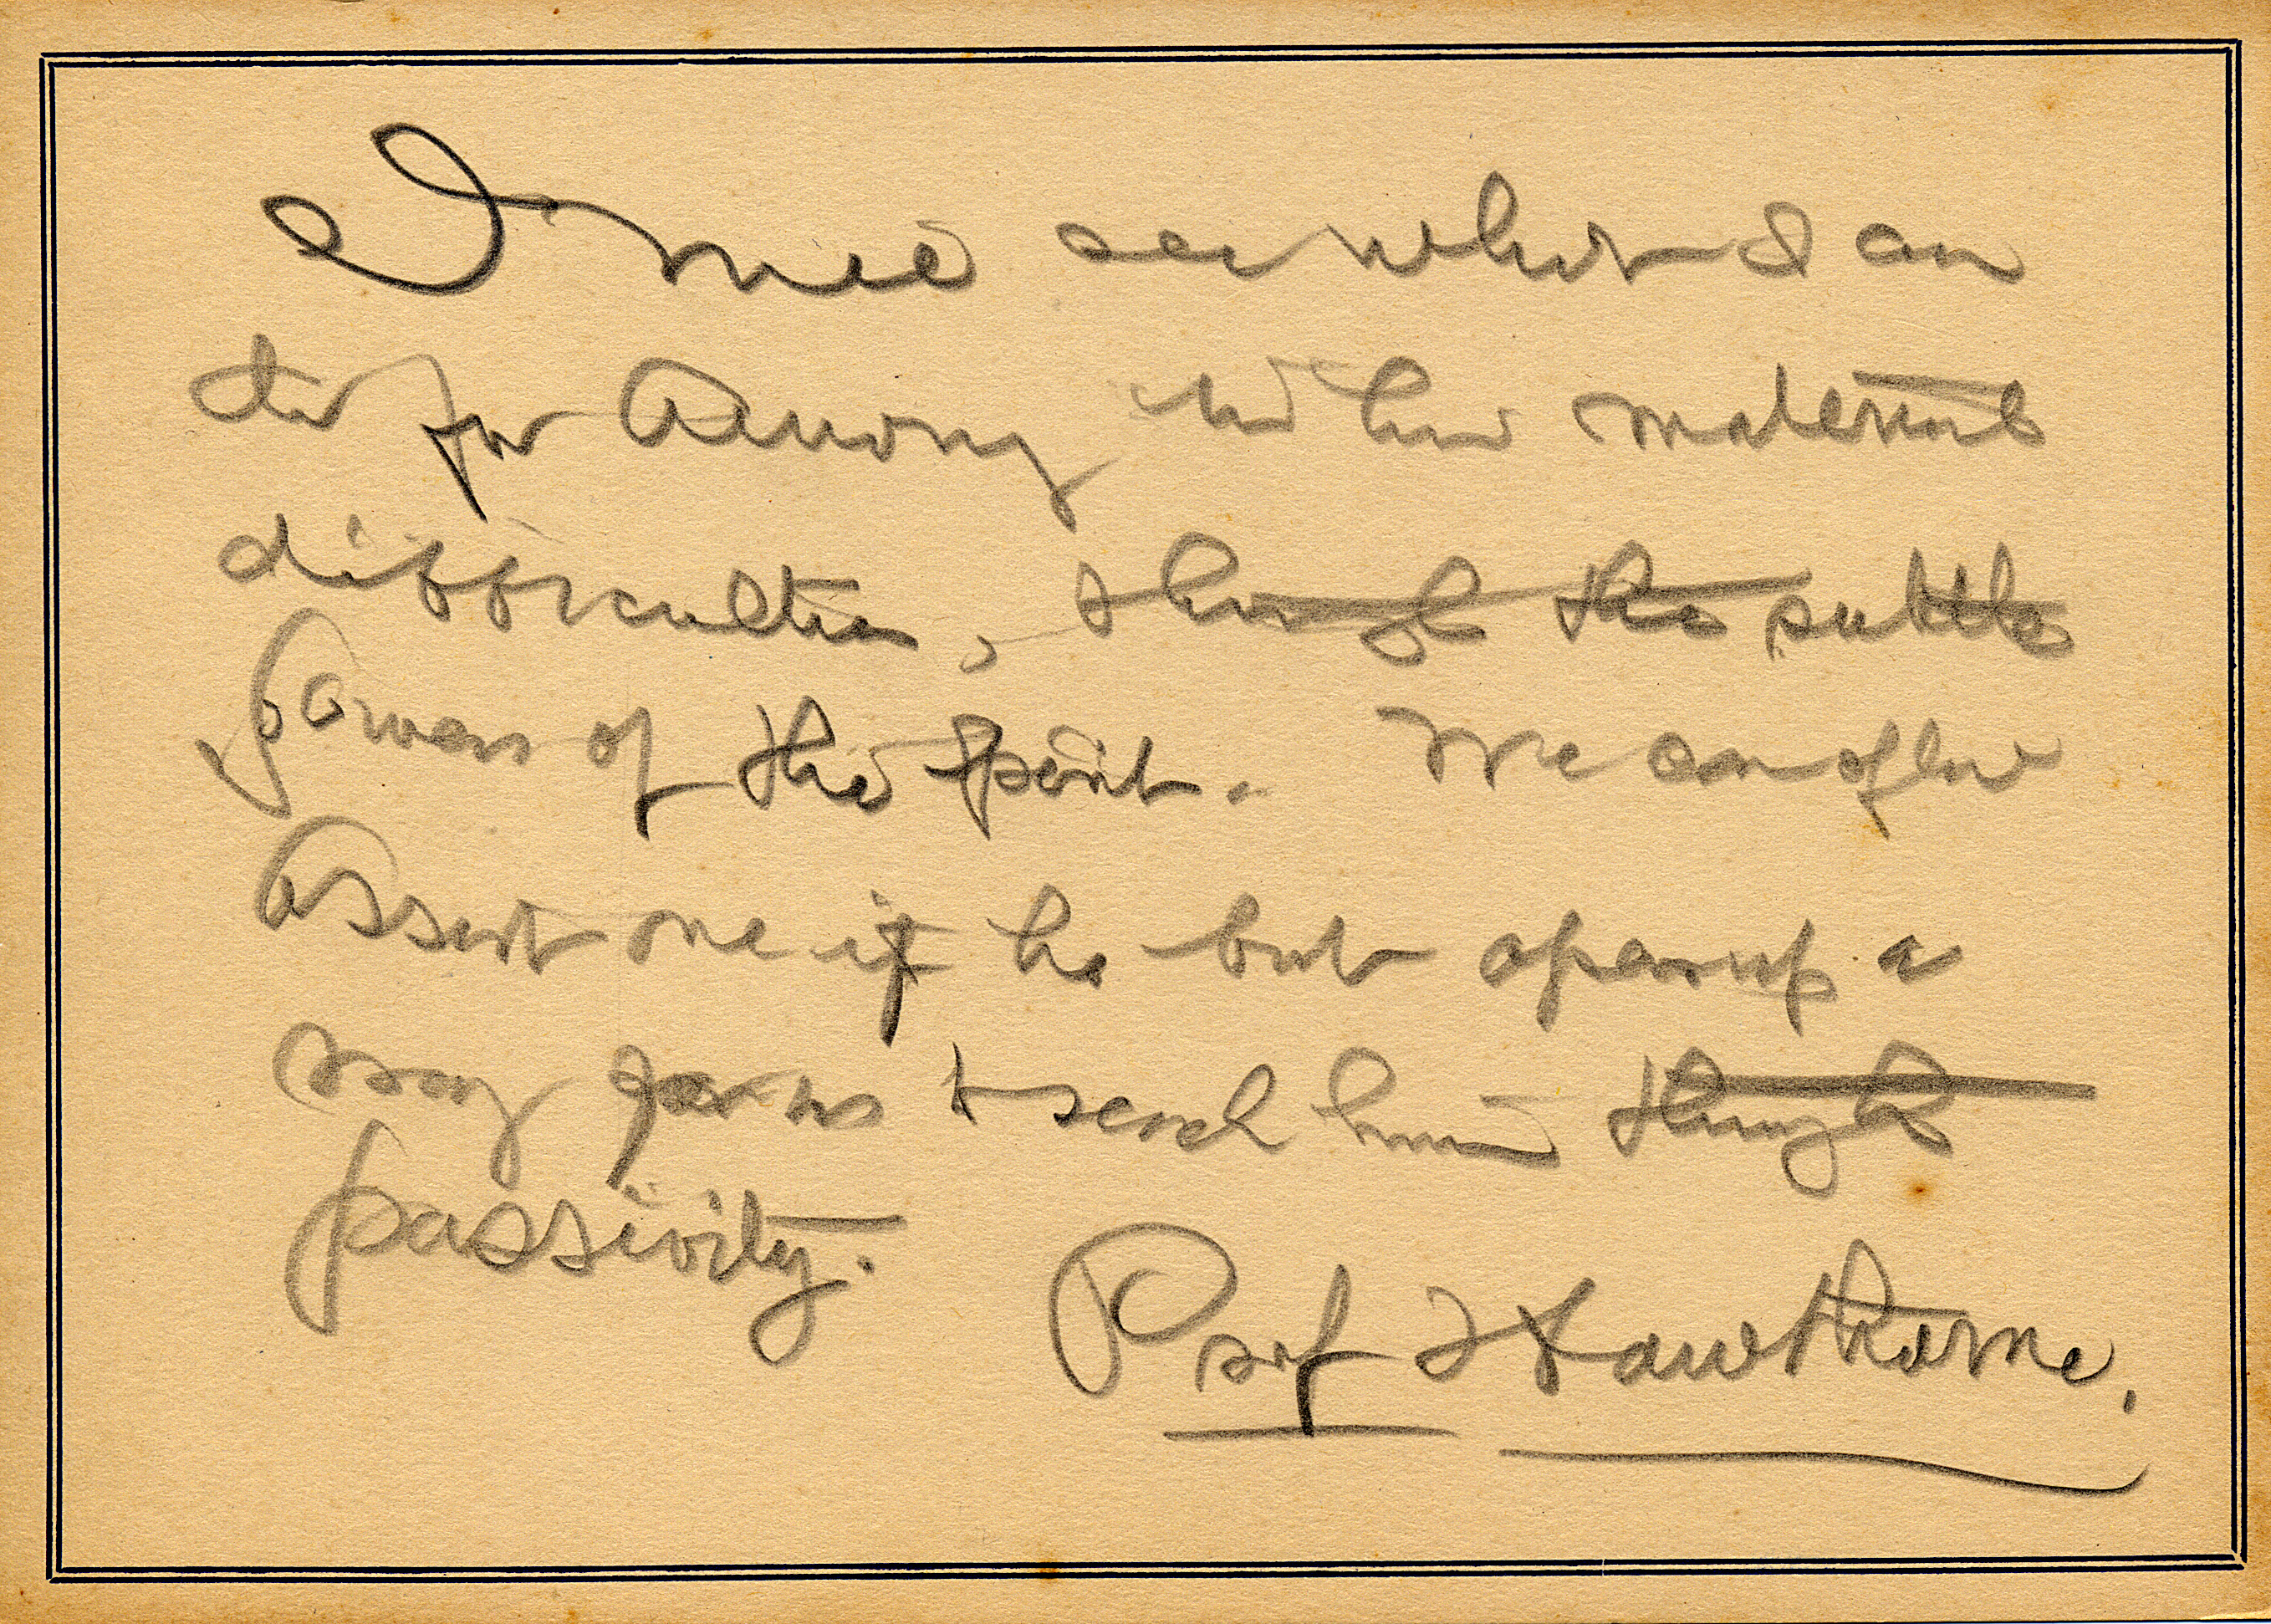 I will see what I can
do for Amony in his material
difficulties, through the subtle
powers of the spirit. We can often
Assist one if he but opens up a
way for us to reach him through
passivity.
Prof Hawthorne.